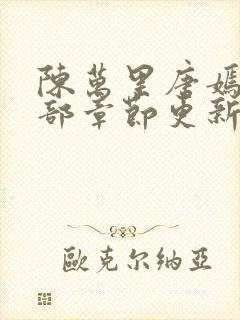 陳萬里唐嫣
部章節更新
歐克尔纳亞